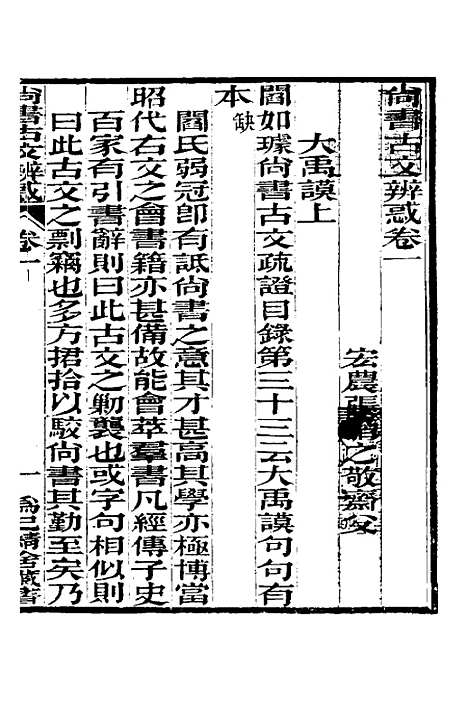 尚書古文辨惑卷一
宏農張之敬齋父
大禹謨上
閻如璩尚書古文疏證目錄第三十三云大禹謨句句有
本缺
閻氏弱冠卽有詆尚書之意其才甚高其學亦極博當
昭代右文之會書籍亦甚備故能會萃羣書凡經傳子史
百家有引書辭則曰此古文之勦襲也或字句相似則
曰此古文之剽竊也多方捃拾以駮尚書其勤至矣乃
尚書古文辨惑
卷一
一
為己精舍藏書